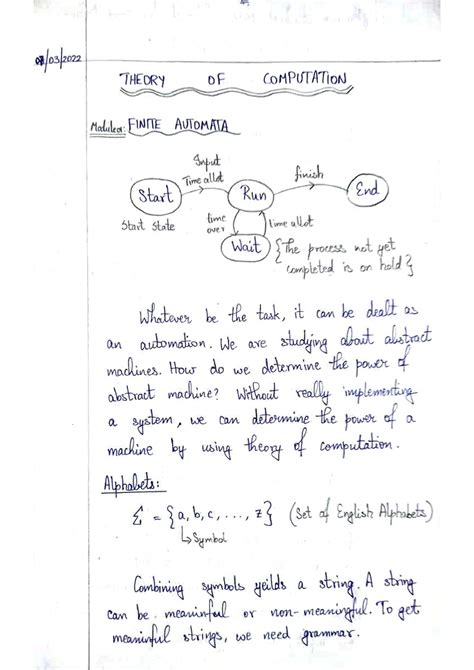 07/03/2022
THEORY OF COMPUTATION
Module 1: FINITE AUTOMATA
Input
Time allot
finish
Start
Run
End
Start State
time over
time allot
Wait
{The process not yet
completed is on hold}
Whatever be the task, it can be dealt as
an automation. We are studying about abstract
machines. How do we determine the power of
abstract machine? Without really implementing
a system, we can determine the power of a
machine by using theory of computation.
Alphabets:
Σ = {a, b, c, ..., z} (Set of English Alphabets)
↳ Symbol
Combining symbols yeilds a string. A string
can be meaninful or non-meaningful. To get
meaninful strings, we need grammar.